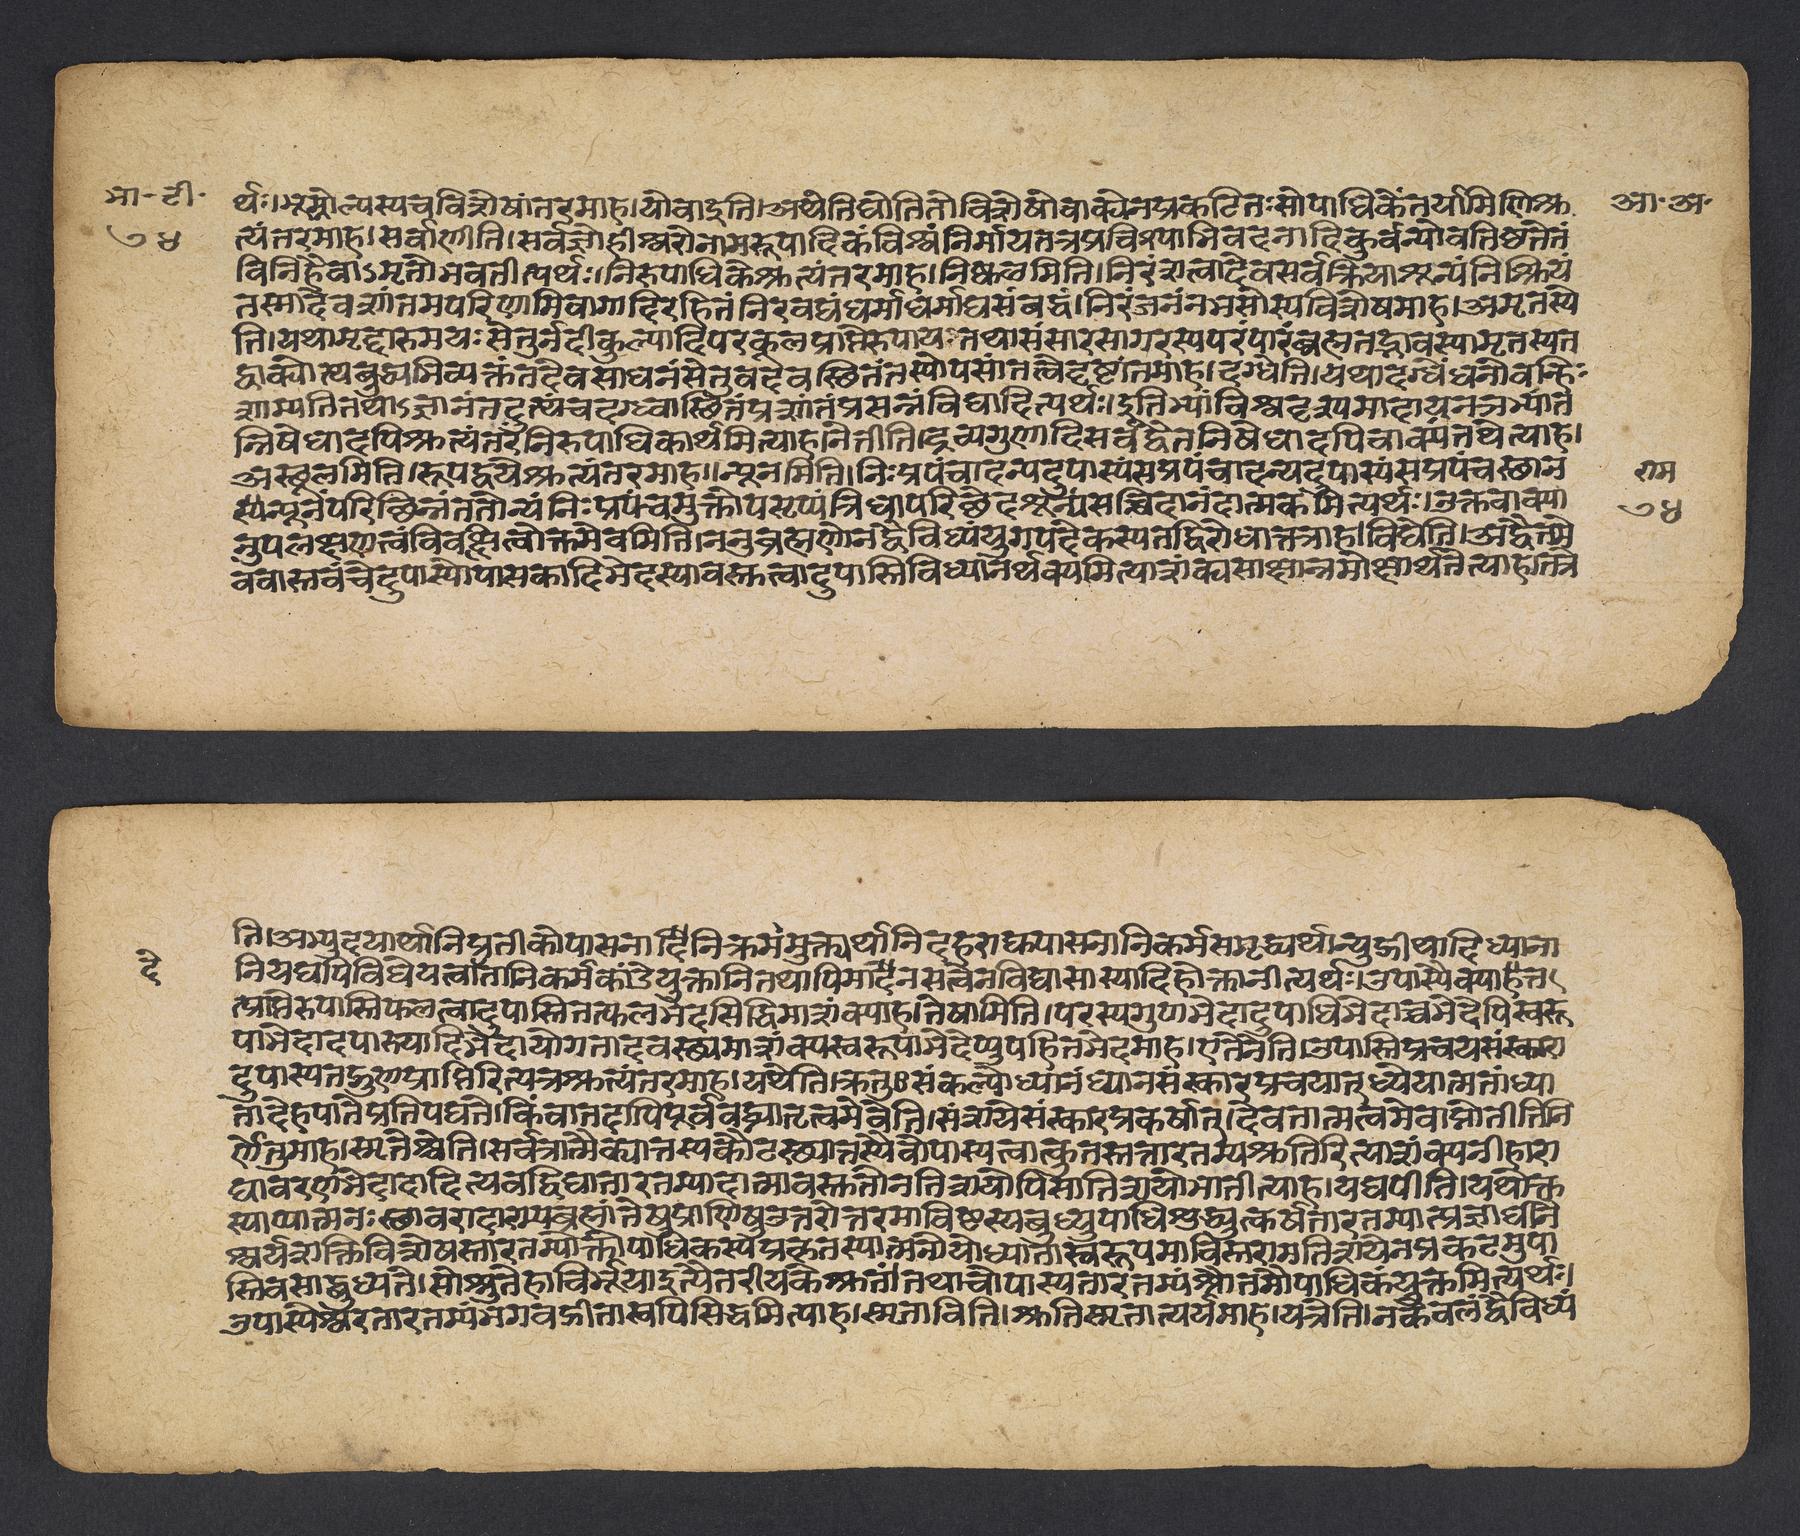 भा-टी-
७४
र्थः।भूम्नोल्पस्यचविशेषांतरमाह।योवाइति।अथेतिद्योतितोविशेषोवाक्येनप्रकटितःसोपाधिकेंतर्यामिणिश्रु
त्यंतरमाह।सर्वाणीति।सर्वज्ञोहीश्वरोनामरूपादिकंविश्वंनिर्मायतत्रप्रविश्याभिवदनादिकुर्वन्योवतिष्ठतेतं
विनिहैवाऽमृतोभवतीत्यर्थः।निरुपाधिकेश्रुत्यंतरमाह।निष्कलमिति।निरंशत्वादेवसर्वक्रियाशून्यंनिष्क्रियं
तस्मादेवशांतमपरिणामिवारागादिरहितंनिरवद्यंधर्माधर्माद्यसंबद्धं।निरंजनंतमसोस्यविशेषमाह।अमृतस्ये
ति।यथामृद्दारुमयःसेतुर्नदीकुल्यादिपरकूलप्राप्तिरुपायःतथासंसारसागरस्यपरंपारंब्रह्मतद्भावस्यामृतस्यत
द्वाक्योत्थबुद्ध्यभिव्यक्तंतदेवसाधनंसेतुवदेवस्थितंतस्योपसांतत्वेदृष्टांतमाह।दग्धेति।यथादग्धेंधनोवन्हिः
शाम्यतितथाऽज्ञानंतद्रुत्यंचदग्ध्वास्थितंप्रशांतंप्रसन्नंविद्यादित्यर्थः।इतिभ्यांविश्वदृश्यमादायनञभ्यांत
न्निषेधादपिश्रुत्यंतरंनिरुपाधिकार्थमित्याह।नेतीति।द्रव्यगुणादिसर्वद्वैतनिषेधादपिचाक्यंतथेत्याह।
अस्थूलमिति।रूपद्वयेश्रुत्यंतरमाह।न्यूनमिति।निःप्रपंचादन्यदुपास्यंसप्रपंचादन्यदुपास्यंसप्रपंचस्थान
स्यन्यूनंपरिछिन्नंततोन्यंनिःप्रपंचमुक्तोपसृप्यंत्रिधापरिछेदशून्यंसच्चिदानंदात्मकमित्यर्थः।उक्तवाक्या
नुपलक्षणत्वंविवक्षित्वोक्तमेवमिति।ननुब्रह्मणोनद्वैविध्यंयुगपदेकस्यतद्विरोधात्तत्राह।विद्येति।अद्वैतमे
ववास्तवंचेदुपास्योपासकादिभेदस्यावस्तुत्वादुपास्तिविध्यानर्थक्यमित्याशंक्यसाक्षान्नमोक्षार्थतेत्याह।तत्रे
आ-अ-
राम
७४
ति।अभ्युदयार्थानिप्रतीकोपासनादीनिक्रममुक्त्यर्थानिदहराद्युपासनानिकर्मसमृद्ध्यर्थान्युद्गीथादिध्याना
नियद्यपिविधेयत्वात्तानिकर्मकांडेयुक्तानितथापिमादेनसत्वेनविद्यासास्यादिहोक्तानीत्यर्थः।उपास्यैक्यात्
त्प्राप्तिरुपास्तिफलत्वादुपास्तितत्फलभेदसिद्धिमाशंक्याह।तेषामिति।परस्यगुणभेदादुपाधिभेदाच्चभेदेपिस्वरू
पाभेदादपास्त्यादिभेदायोगतादवस्थ्यमाशंक्यस्वरूपाभेदेप्युपहितभेदमाह।एतेनेति।उपास्तिप्रचयसंस्कारा
दुपास्यतद्गुणप्राप्तिरित्यत्रश्रुत्यंतरमाह।यथेति।क्रतुःसंकल्पोध्यानंध्यानसंस्कारप्रचयात्ध्येयात्मतांध्या
तादेहपातेप्रतिपद्यते।किंवातदापिपूर्ववद्ध्यातृत्वमेवेति।संशयेसंस्कारप्रकर्षात्।देवतात्मत्वमेवाप्नोतीतिनि
र्णेतुमाह।स्मृतेश्चेति।सर्वत्रात्मैक्यात्तस्यकौटस्थ्यात्तस्यैवोपास्यत्वात्कुतस्तत्तारतम्यश्रुतिरित्याशंक्यनीहारा
द्यावरणभेदादादित्यवद्विद्यातारतम्यादात्मावस्तुतोनतिशयोपिसातिशयोभातीत्याह।यद्यपीति।यथोक्त
स्याप्यात्मनःस्थावरादारभ्यब्रह्मांतेषुप्राणिषुउत्तरोत्तरमाविष्टस्यबुध्युपाधिशुद्ध्युत्कर्षतारतम्यात्प्रज्ञाधीने
श्वर्यशक्तिविशेषस्तारतम्योक्तोपाधिकस्यप्रकृतस्यात्मनोयोध्यातास्वरूपमाविस्तरामतिशयेनप्रकटमुपा
स्तिवसाद्बुध्यते।सोश्नुतेहाविर्भूयादुत्यैतरीयकेश्रुतं।तथाचोपास्यतारतम्यंश्रौतमौपाधिकंयुक्तमित्यर्थः।
उपास्येश्वरतारतम्यंभगवद्गीतास्वपिसिद्धमित्याह।स्मृताविति।श्रुतिस्मृतात्पर्यमाह।यत्रेति।नकेवलंद्वैविध्यं